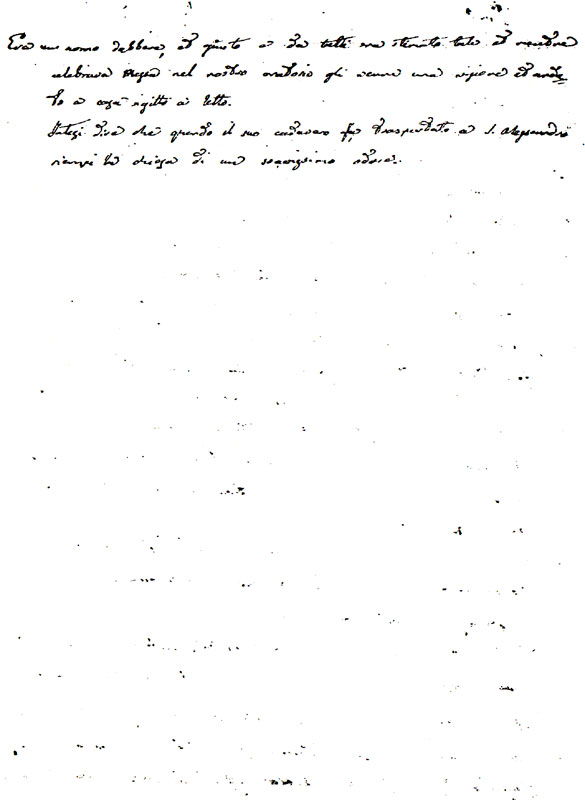 Era un uomo dabbene, et giusto e da tutti era stimato tale et mentre
celebrava messa nel nostro oratorio gli venne una visione et anda
to a casa si gittò a letto.
Intesi dire che quando il suo cadavero fu trasportato a S. Alessandro
riempì la chiesa di un soavissimo odore.